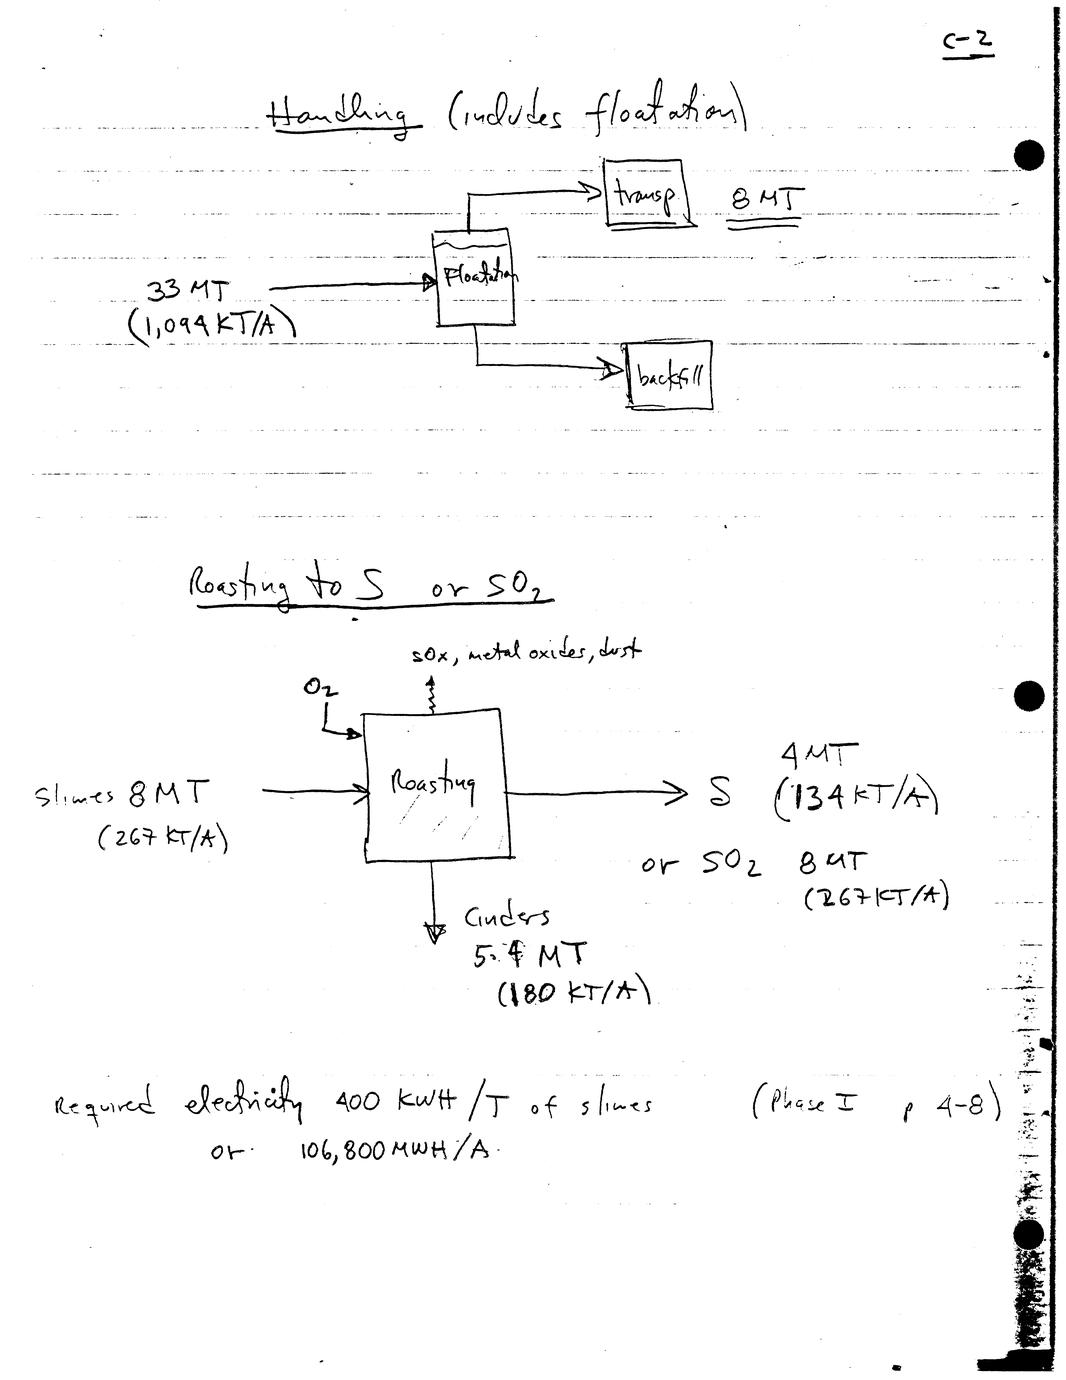 C-2
Handling (includes floatation)
transp. 8 MT
Floatation
33 MT
(1,094 KT/A)
backfill
Roasting to S or SO2
SOx, metal oxides, dust
O2
Roasting
Slimes 8 MT
(267 KT/A)
S 4 MT
(134 KT/A)
or SO2 8 MT
(267 KT/A)
Cinders
5.4 MT
(180 KT/A)
Required electricity 400 KWH/T of slimes (Phase I p 4-8)
or 106,800 MWH/A.